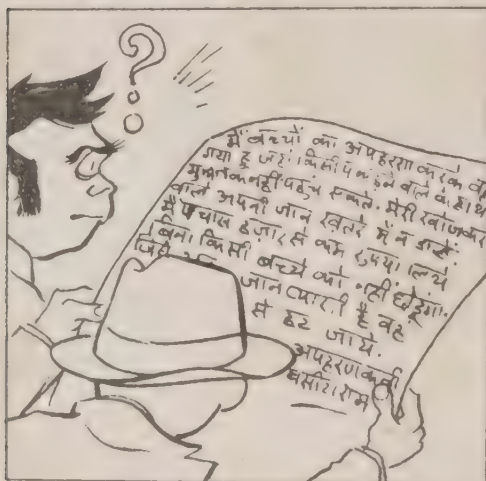 ?
मैं बच्चों का अपहरण करके वहां
गया हूं जहां किसी पकड़ने वाले के हाथ
मुझ तक नहीं पहुंच सकते. मेरी खोज कर
वाले अपनी जान खतरे में न डालें.
मैं पचास हजार से कम रुपया लिये
बिना किसी बच्चे को नहीं छोडूंगा.
जिसे जान प्यारी है वह
से हट जाये.
अपहरणकर्ता
घसीटाराम